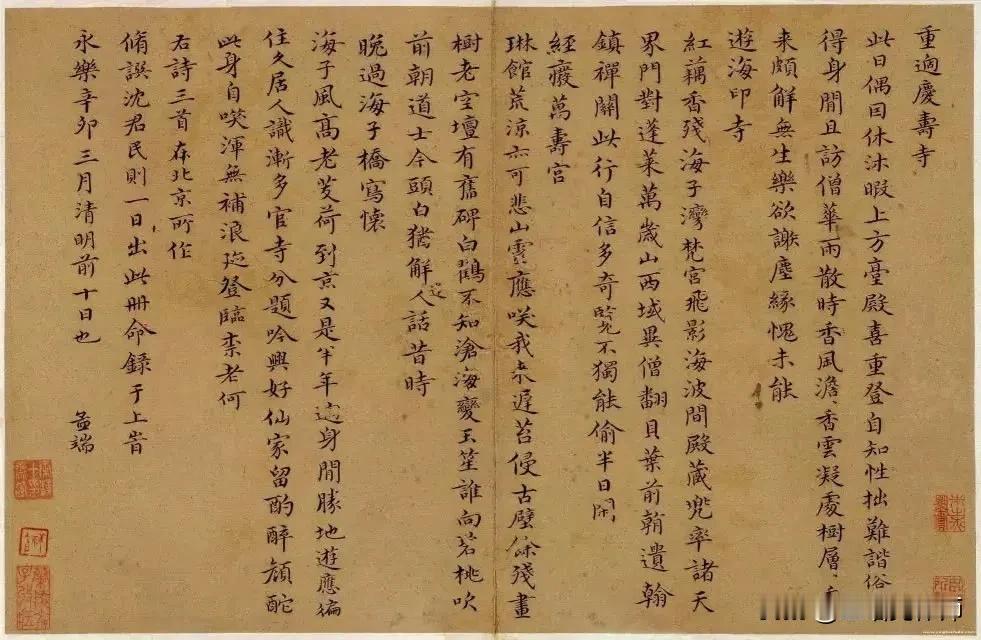 重適慶壽寺
此日偶因休沐暇上方臺殿喜重登自知性拙難諧俗
得身閒且訪僧華雨散時香風澹、香雲凝處樹層、
来頗解無生樂欲謝塵緣愧未能
遊海印寺
紅藕香殘海子灣梵宮飛影海波間殿藏兜率諸天
界門對蓬萊萬歲山西域異僧翻貝葉前朝遺翰
鎮禪關此行自信多奇覽不獨能偷半日閑
經廢萬壽宮
琳館荒涼亦可悲山靈應咲我来遲苔侵古壁餘殘畫
樹老空壇有舊碑白鶴不知滄海變玉笙誰向碧桃吹
前朝道士今頭白猶解逢人話昔時
晚過海子橋寫懷
海子風高老芰荷到京又是半年過身閒勝地遊應徧
住久居人識漸多官寺分題吟興好仙家留酌醉顏酡
此身自嘆渾無補浪迹登臨柰老何
右詩三首在北京所作
脩譔沈君民則一日出此冊命錄于上旹
永樂辛卯三月清明前十日也
孟端